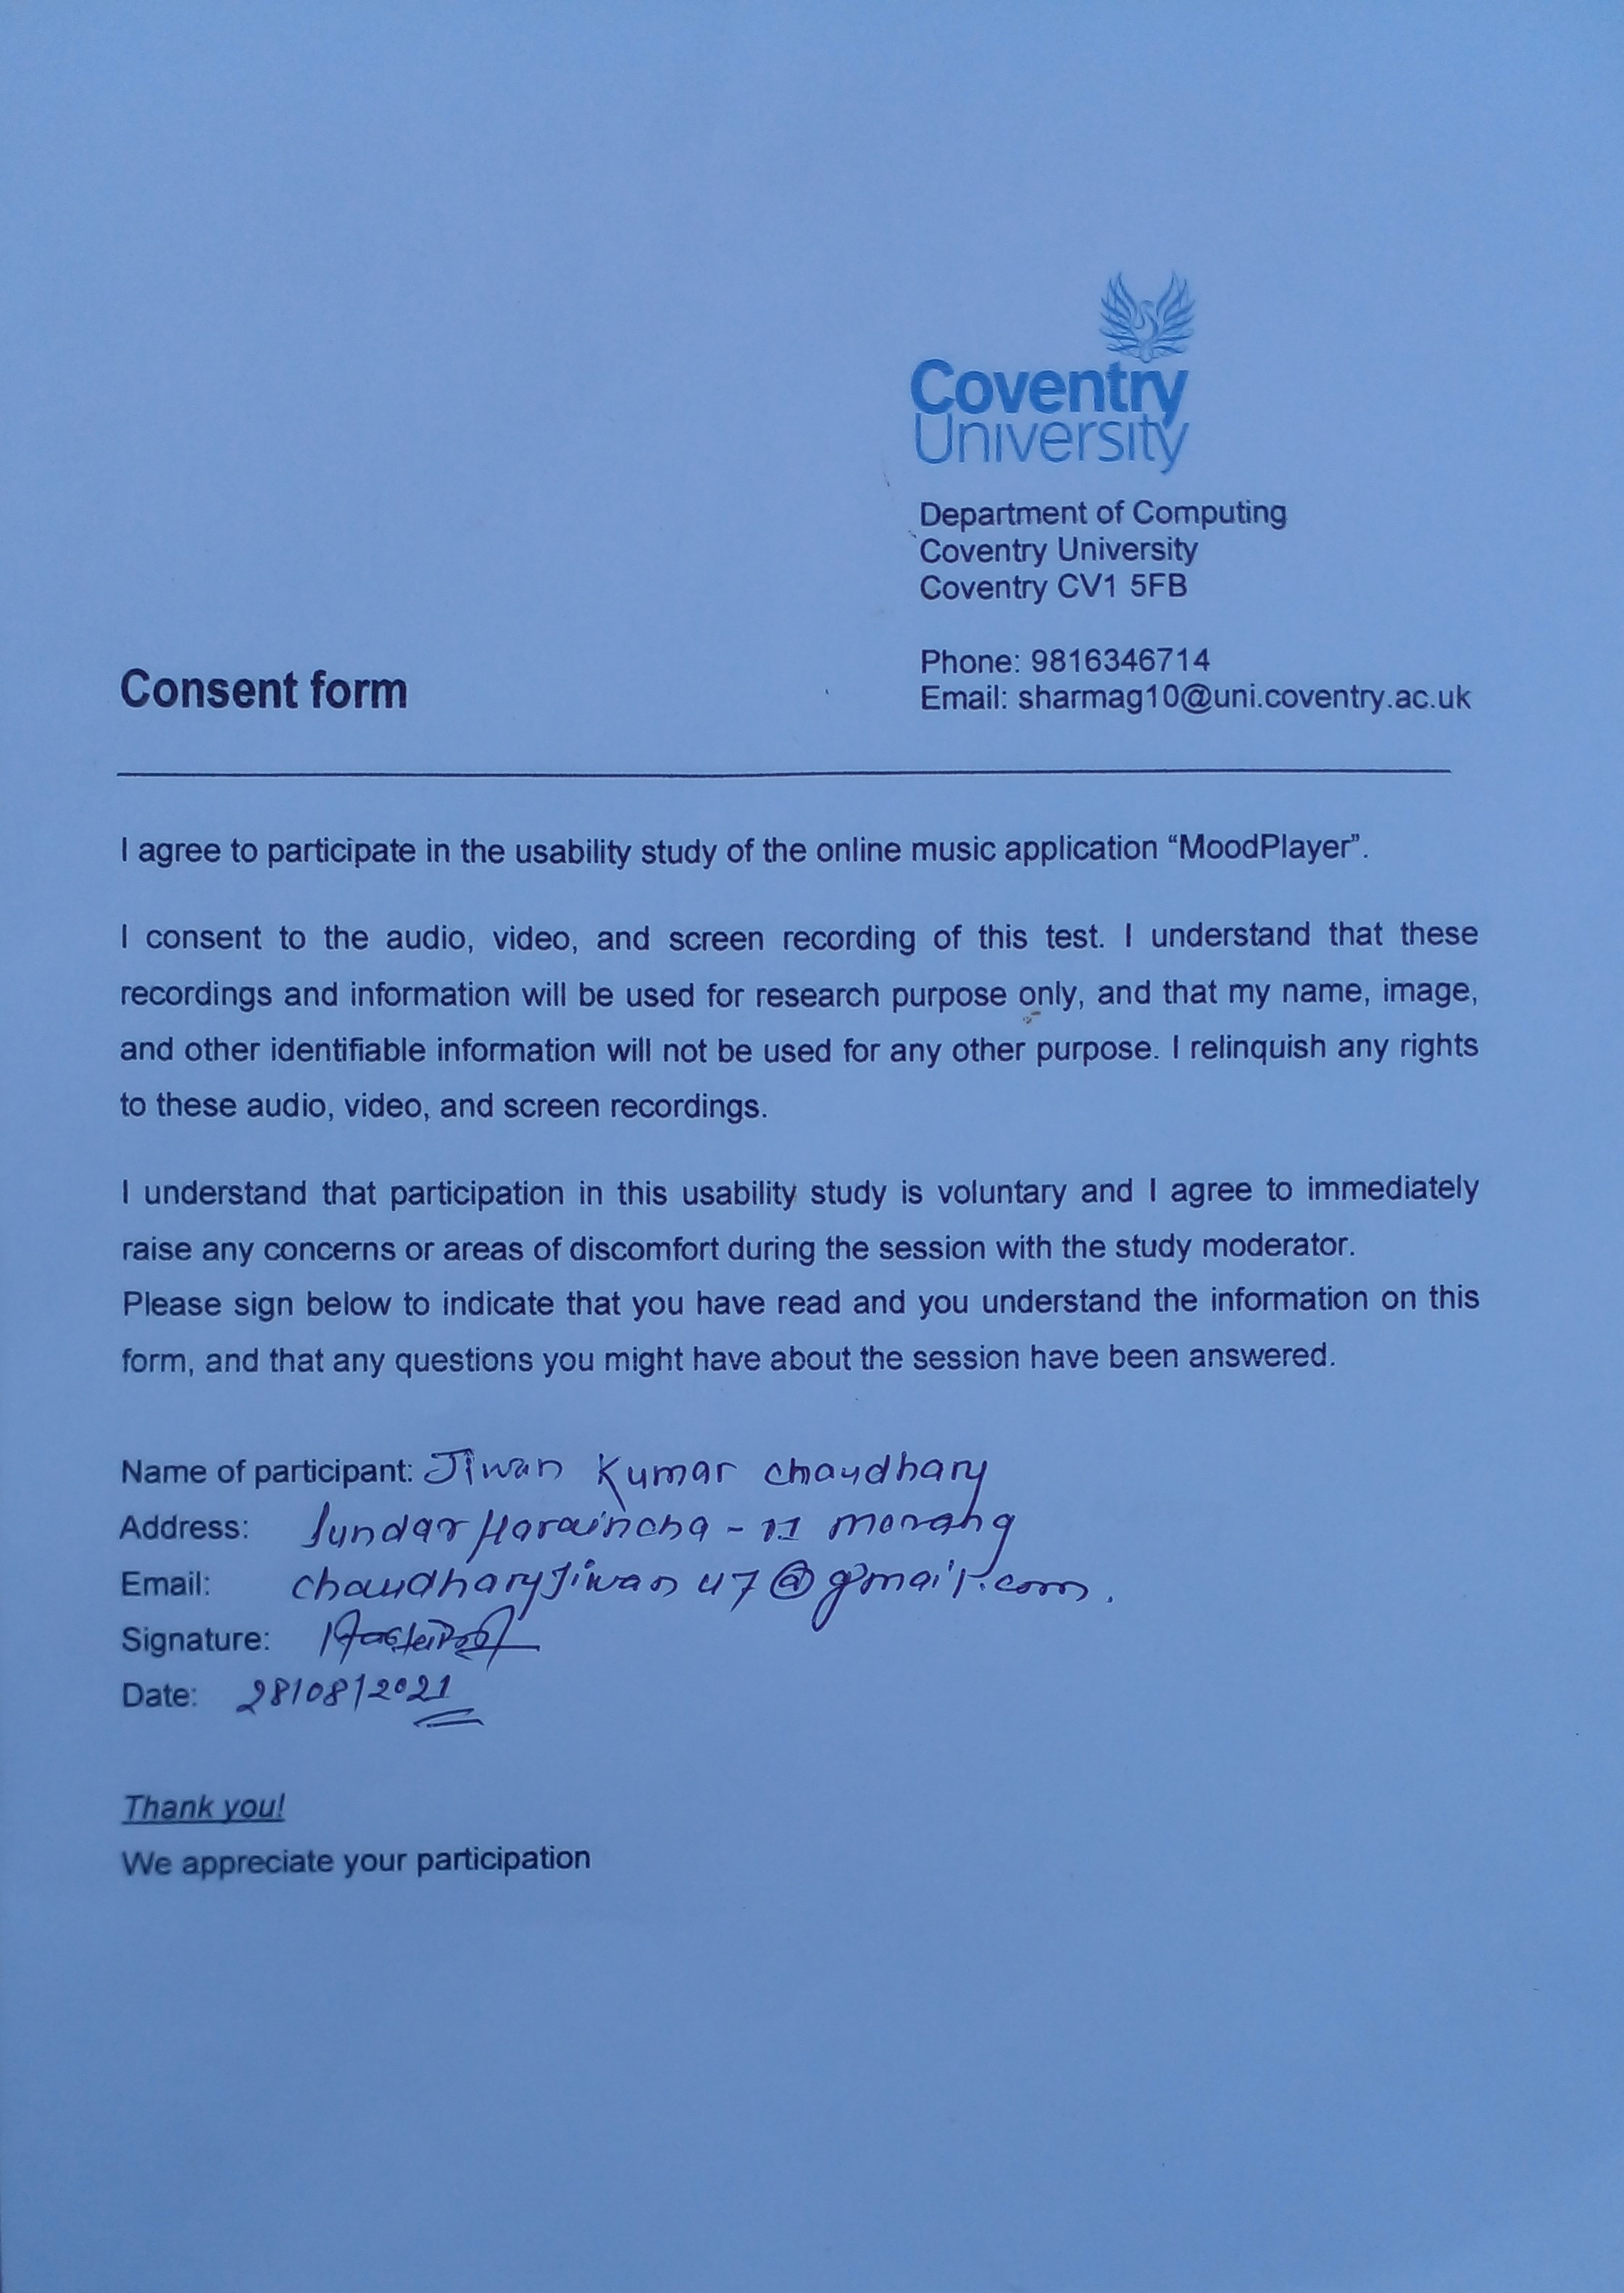 Coventry
University
Department of Computing
Coventry University
Coventry CV1 5FB
Phone: 9816346714
Email: sharmag10@uni.coventry.ac.uk
Consent form
I agree to participate in the usability study of the online music application “MoodPlayer”.
I consent to the audio, video, and screen recording of this test. I understand that these
recordings and information will be used for research purpose only, and that my name, image,
and other identifiable information will not be used for any other purpose. I relinquish any rights
to these audio, video, and screen recordings.
I understand that participation in this usability study is voluntary and I agree to immediately
raise any concerns or areas of discomfort during the session with the study moderator.
Please sign below to indicate that you have read and you understand the information on this
form, and that any questions you might have about the session have been answered.
Name of participant: Jiwan Kumar chaudhary
Address: Sundar Haraincha - 11 morang
Email: chaudharyJiwan47@gmail.com.
Signature:
Date: 28/08/2021
Thank you!
We appreciate your participation